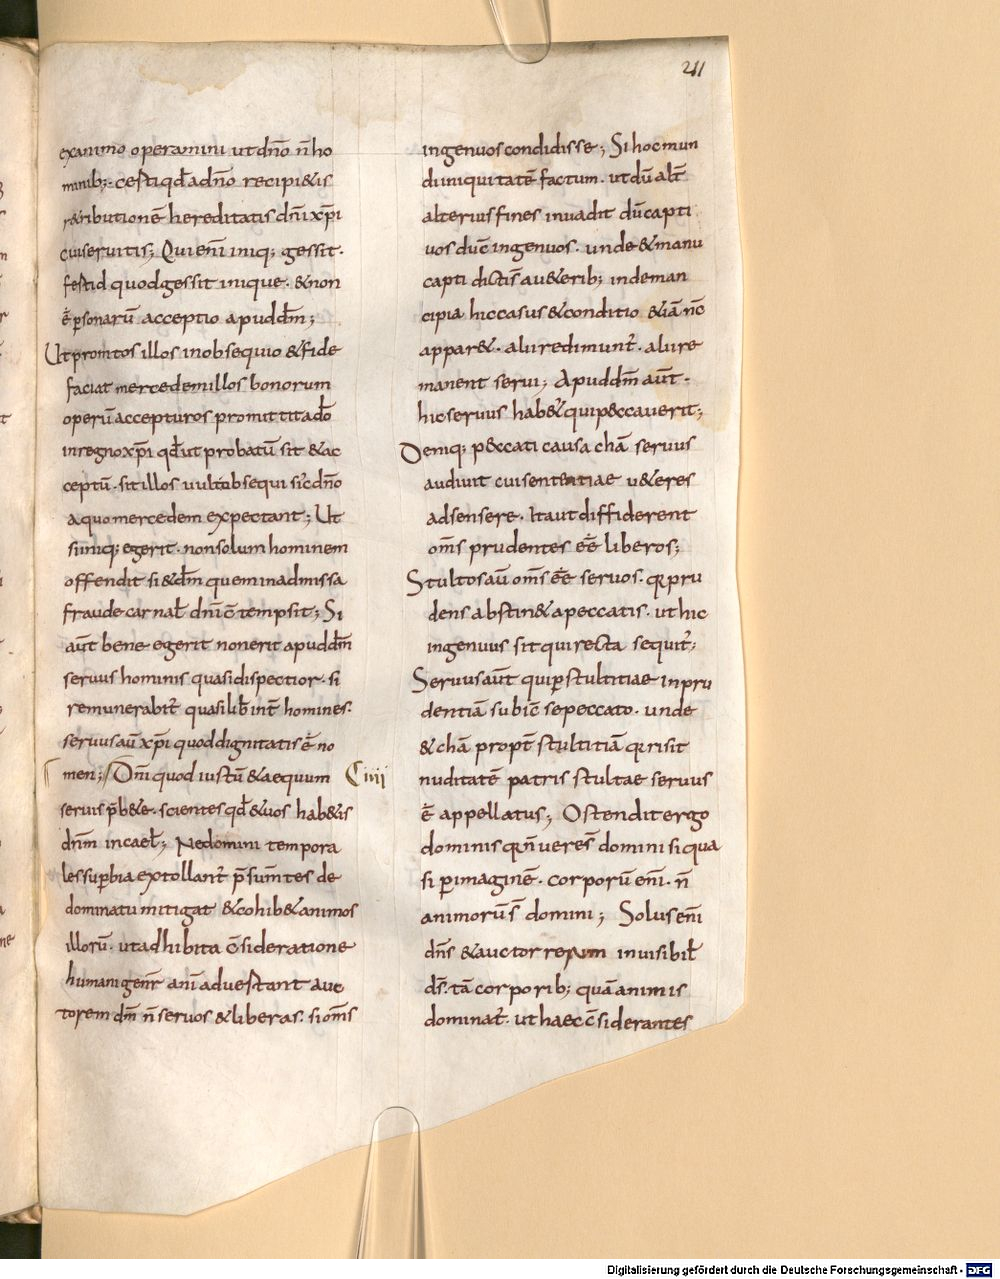 211
exanimo operamini ut dn̄o n̄ ho
minib;. cestiqd̄ adn̄o recipi&is
r&ributionē hereditatis dn̄i xp̄i
cuiseruitis; Qui enī iniq; gessit.
festid quodgessit inique. &non
ē personarū acceptio apud dm̄;
Ut promtos illos inobsequio &fide
faciat mercedem illos bonorum
operū accepturos promittit ad̄o
inregno xp̄i qd̄ ut probatū sit &ac
ceptū. sit illos uult obsequi sic dn̄o
a quo mercedem expectant; Ut
siiniq; egerit. non solum hominem
offendit si &dm̄ quem in admissa
fraude carnal̄ dn̄i c̄tempsit; Si
aūt bene egerit non erit apud dm̄
seruus hominis quasi dispectior. si
remunerabit̄ quasi lib̄ int̄ homines.
seruus aū xp̄i quod dignitatis ē no
men; Dn̄i quod iustū &aequum
Ciiii
seruis p̄b&e. scientes qd̄ &uos hab&is
dn̄m in cael̄; Ne domini tempora
les sup̄bia extollant̄ p̄sum̄tes de
dominatu mitigat &cohib& animos
illorū. ut adhibita c̄sideratione
humani gener̄ anī aduestant auc
torem dm̄ n̄ seruos &liberas. si om̄s
ingenuos condidisse; Si hoc mun
di iniquitatē factum. ut dū alt̄
alterius fines inuadit dū capti
uos duc̄ ingenuos. unde &manu
capti dictis̄ au&erib; inde man
cipia hic casus &conditio &iā nc̄
appar&. alii redimunt̄. alii re
manent serui; Apud dm̄ aūt.
hic seruus hab&̄ qui p&ccauerit;
Deniq; p&ccati causa chā seruus
audiuit cui sententiae u&eres
adsensere. Ita ut diffiderent
om̄s prudentes eē liberos;
Stultos aū om̄s eē seruos. q pru
dens abstin& a peccatis. ut hic
ingenuus sit qui recta sequit̄;
Seruus aūt qui p stultitiae inpru
dentiā subic̄ se peccato. unde
&chā propt̄ stultitiā q risit
nuditatē patris stultae seruus
ē appellatus; Ostendit ergo
dominis qn̄ ueres̄ domini si qua
si p imaginē. corporū enī. n̄
animorū s̄ domini; Solus enī
dn̄s &auctor rerum inuisibil̄
ds̄. tā corporib; quā animis
dominat̄. ut haec c̄siderantes
Digitalisierung gefördert durch die Deutsche Forschungsgemeinschaft - DFG